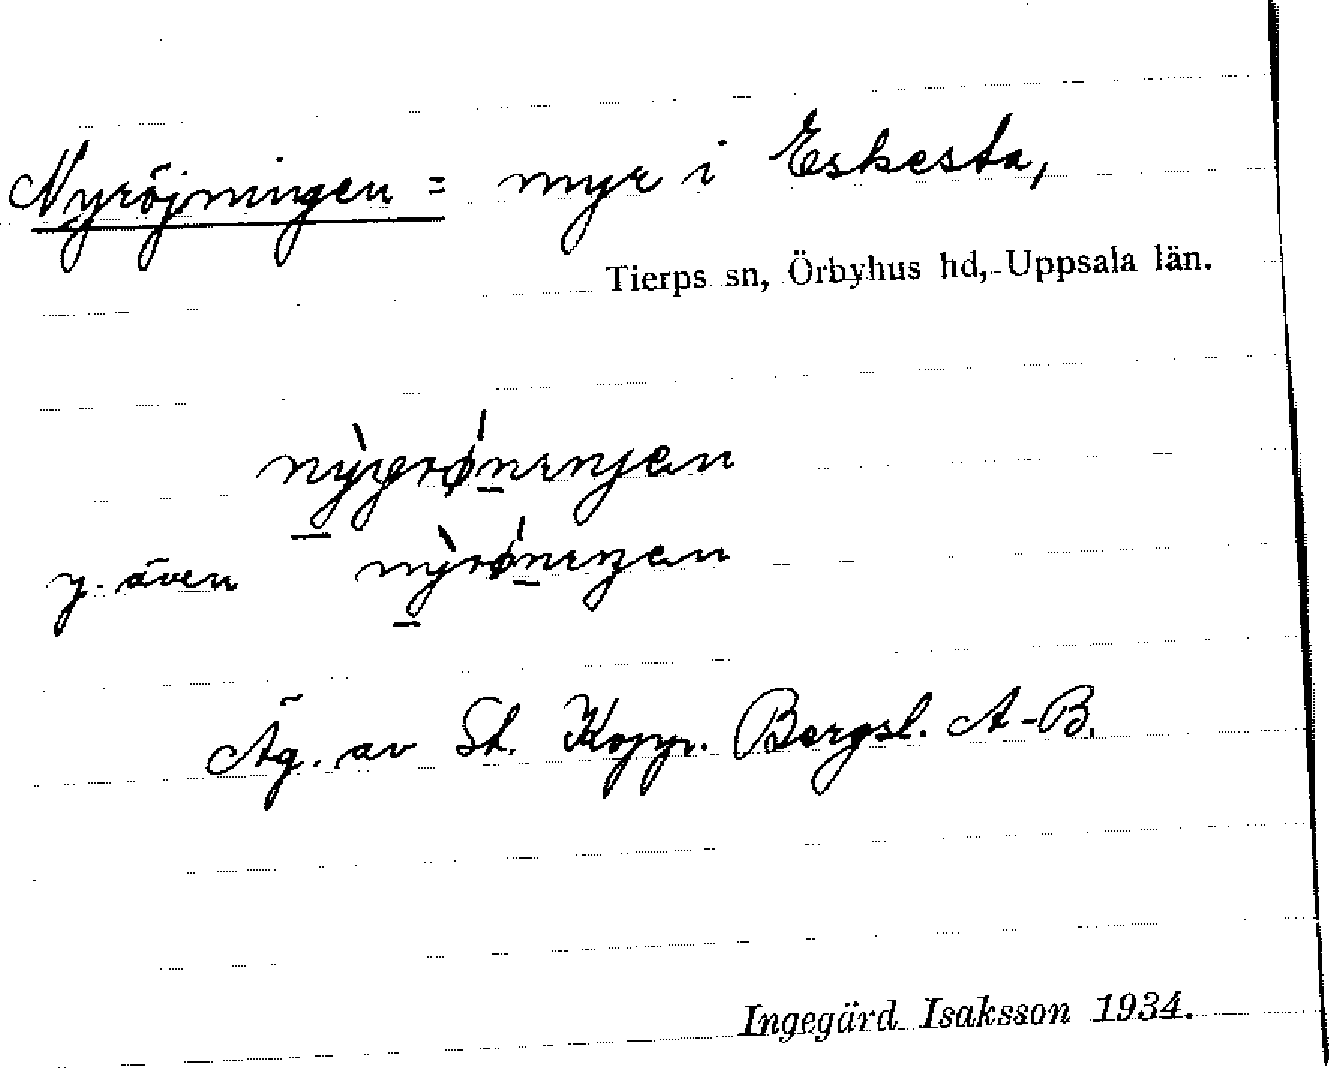 Nyröjningen = myr i Eskesta,
Tierps sn, Örbyhus hd, Uppsala län.
y. även
Äg. av St. Kopp. Bergsl. A-B.
Ingegärd Isaksson 1934.